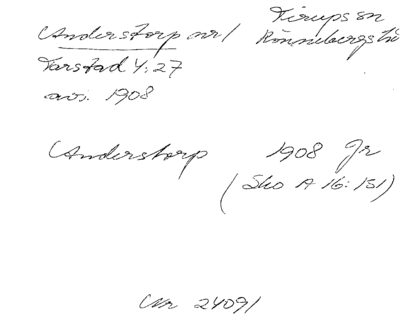 Anderstorp nr 1 Tirups sn
Rönnebergs hd
Tarstad 4:27
avs. 1908
Anderstorp 1908 Jr
(Sko A 16:151)
Nr 24091